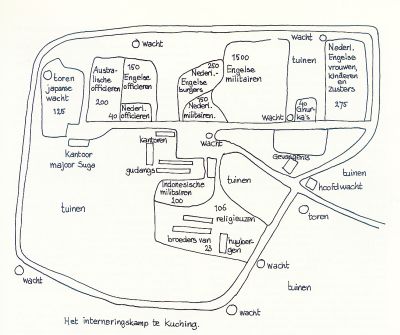 wacht
wacht
toren
japanse
wacht
125
Austra-
lische
officieren
200
150
Engelse
officieren
Nederl.
40 officieren
250
Nederl.-
Engelse
burgers
150
Nederl.
militairen.
1500
Engelse
militairen
tuinen
40
Ghur-
ka's
wacht
Nederl.
Engelse
vrouwen,
kinderen
en
zusters
275
Kantoor
majoor Suga
kantoren
gudangs
wacht
Gevangenis
hoofdwacht
tuinen
toren
Indonesische
militairen
200
tuinen
106
religieuzen
broeders van
23
huijber-
gen
tuinen
wacht
wacht
wacht
tuinen
Het interneringskamp te Kuching.